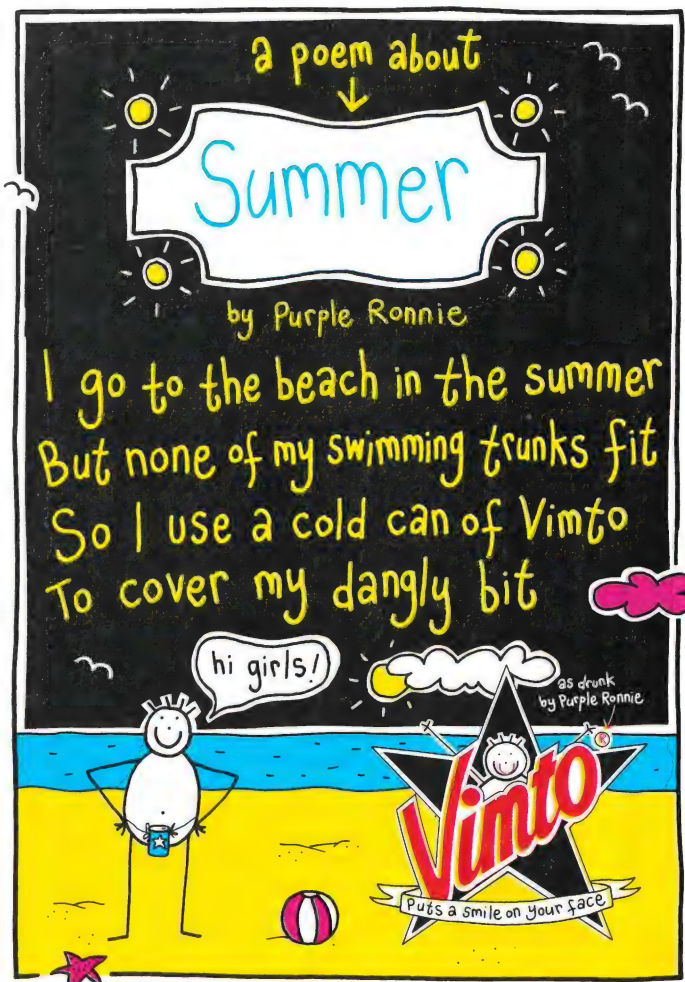 a poem about
Summer
by Purple Ronnie
I go to the beach in the summer
But none of my swimming trunks fit
So I use a cold can of Vimto
To cover my dangly bit
hi girls!
as drunk
by Purple Ronnie
Vimto
Puts a smile on your face